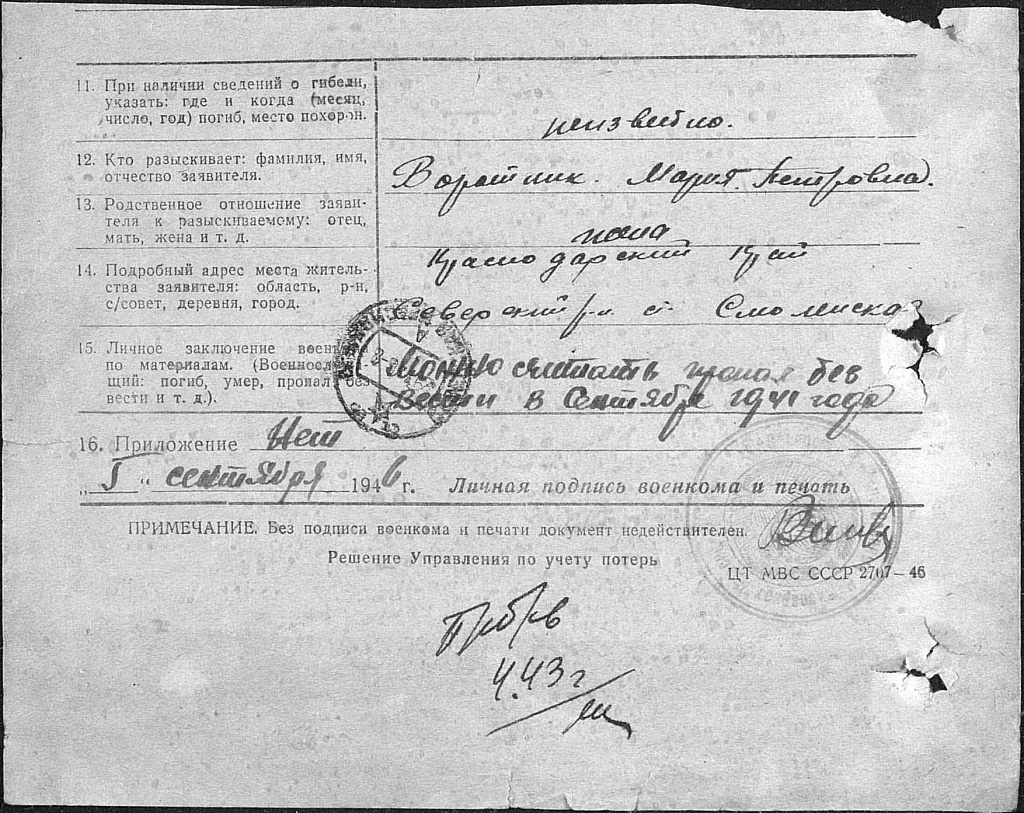 11. При наличии сведений о гибели,
указать: где и когда (месяц,
число, год) погиб, место похорон.
неизвестно.
12. Кто разыскивает: фамилия, имя,
отчество заявителя.
Воротник Мария Петровна.
13. Родственное отношение заяви-
теля к разыскиваемому: отец,
мать, жена и т. д.
жена
14. Подробный адрес места житель-
ства заявителя: область, р-н,
с/совет, деревня, город.
Краснодарский Край
Северский р-н ст. Смоленская
15. Личное заключение военкома
по материалам. (Военнослу-
щий: погиб, умер, пропал без
вести и т. д.).
Можно считать пропал без
вести в Сентябре 1941 года
16. Приложение Нет
„1" сентября 1946 г. Личная подпись военкома и печать
ПРИМЕЧАНИЕ. Без подписи военкома и печати документ недействителен.
Решение Управления по учету потерь
ЦТ МВС СССР 2767-46
4.43 г